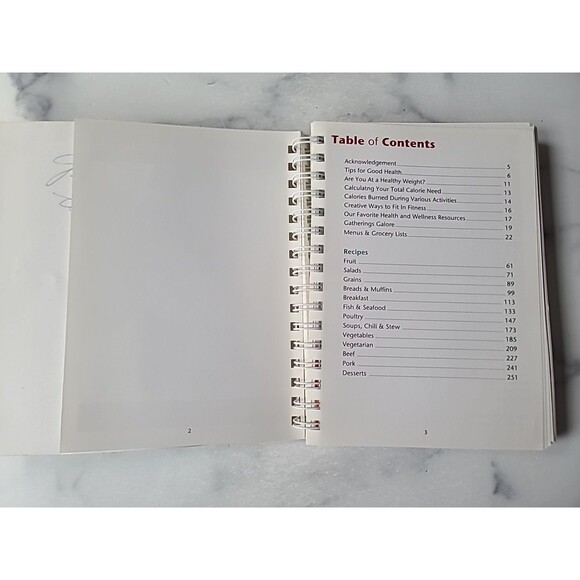 2
Table of Contents
Acknowledgement 5
Tips for Good Health 6
Are You At a Healthy Weight? 11
Calculatng Your Total Calorie Need 13
Calories Burned During Various Activities 14
Creative Ways to Fit In Fitness 16
Our Favorite Health and Wellness Resources 17
Gatherings Galore 19
Menus & Grocery Lists 22
Recipes
Fruit 61
Salads 71
Grains 89
Breads & Muffins 99
Breakfast 113
Fish & Seafood 133
Poultry 147
Soups, Chili & Stew 173
Vegetables 185
Vegetarian 209
Beef 227
Pork 241
Desserts 251
3